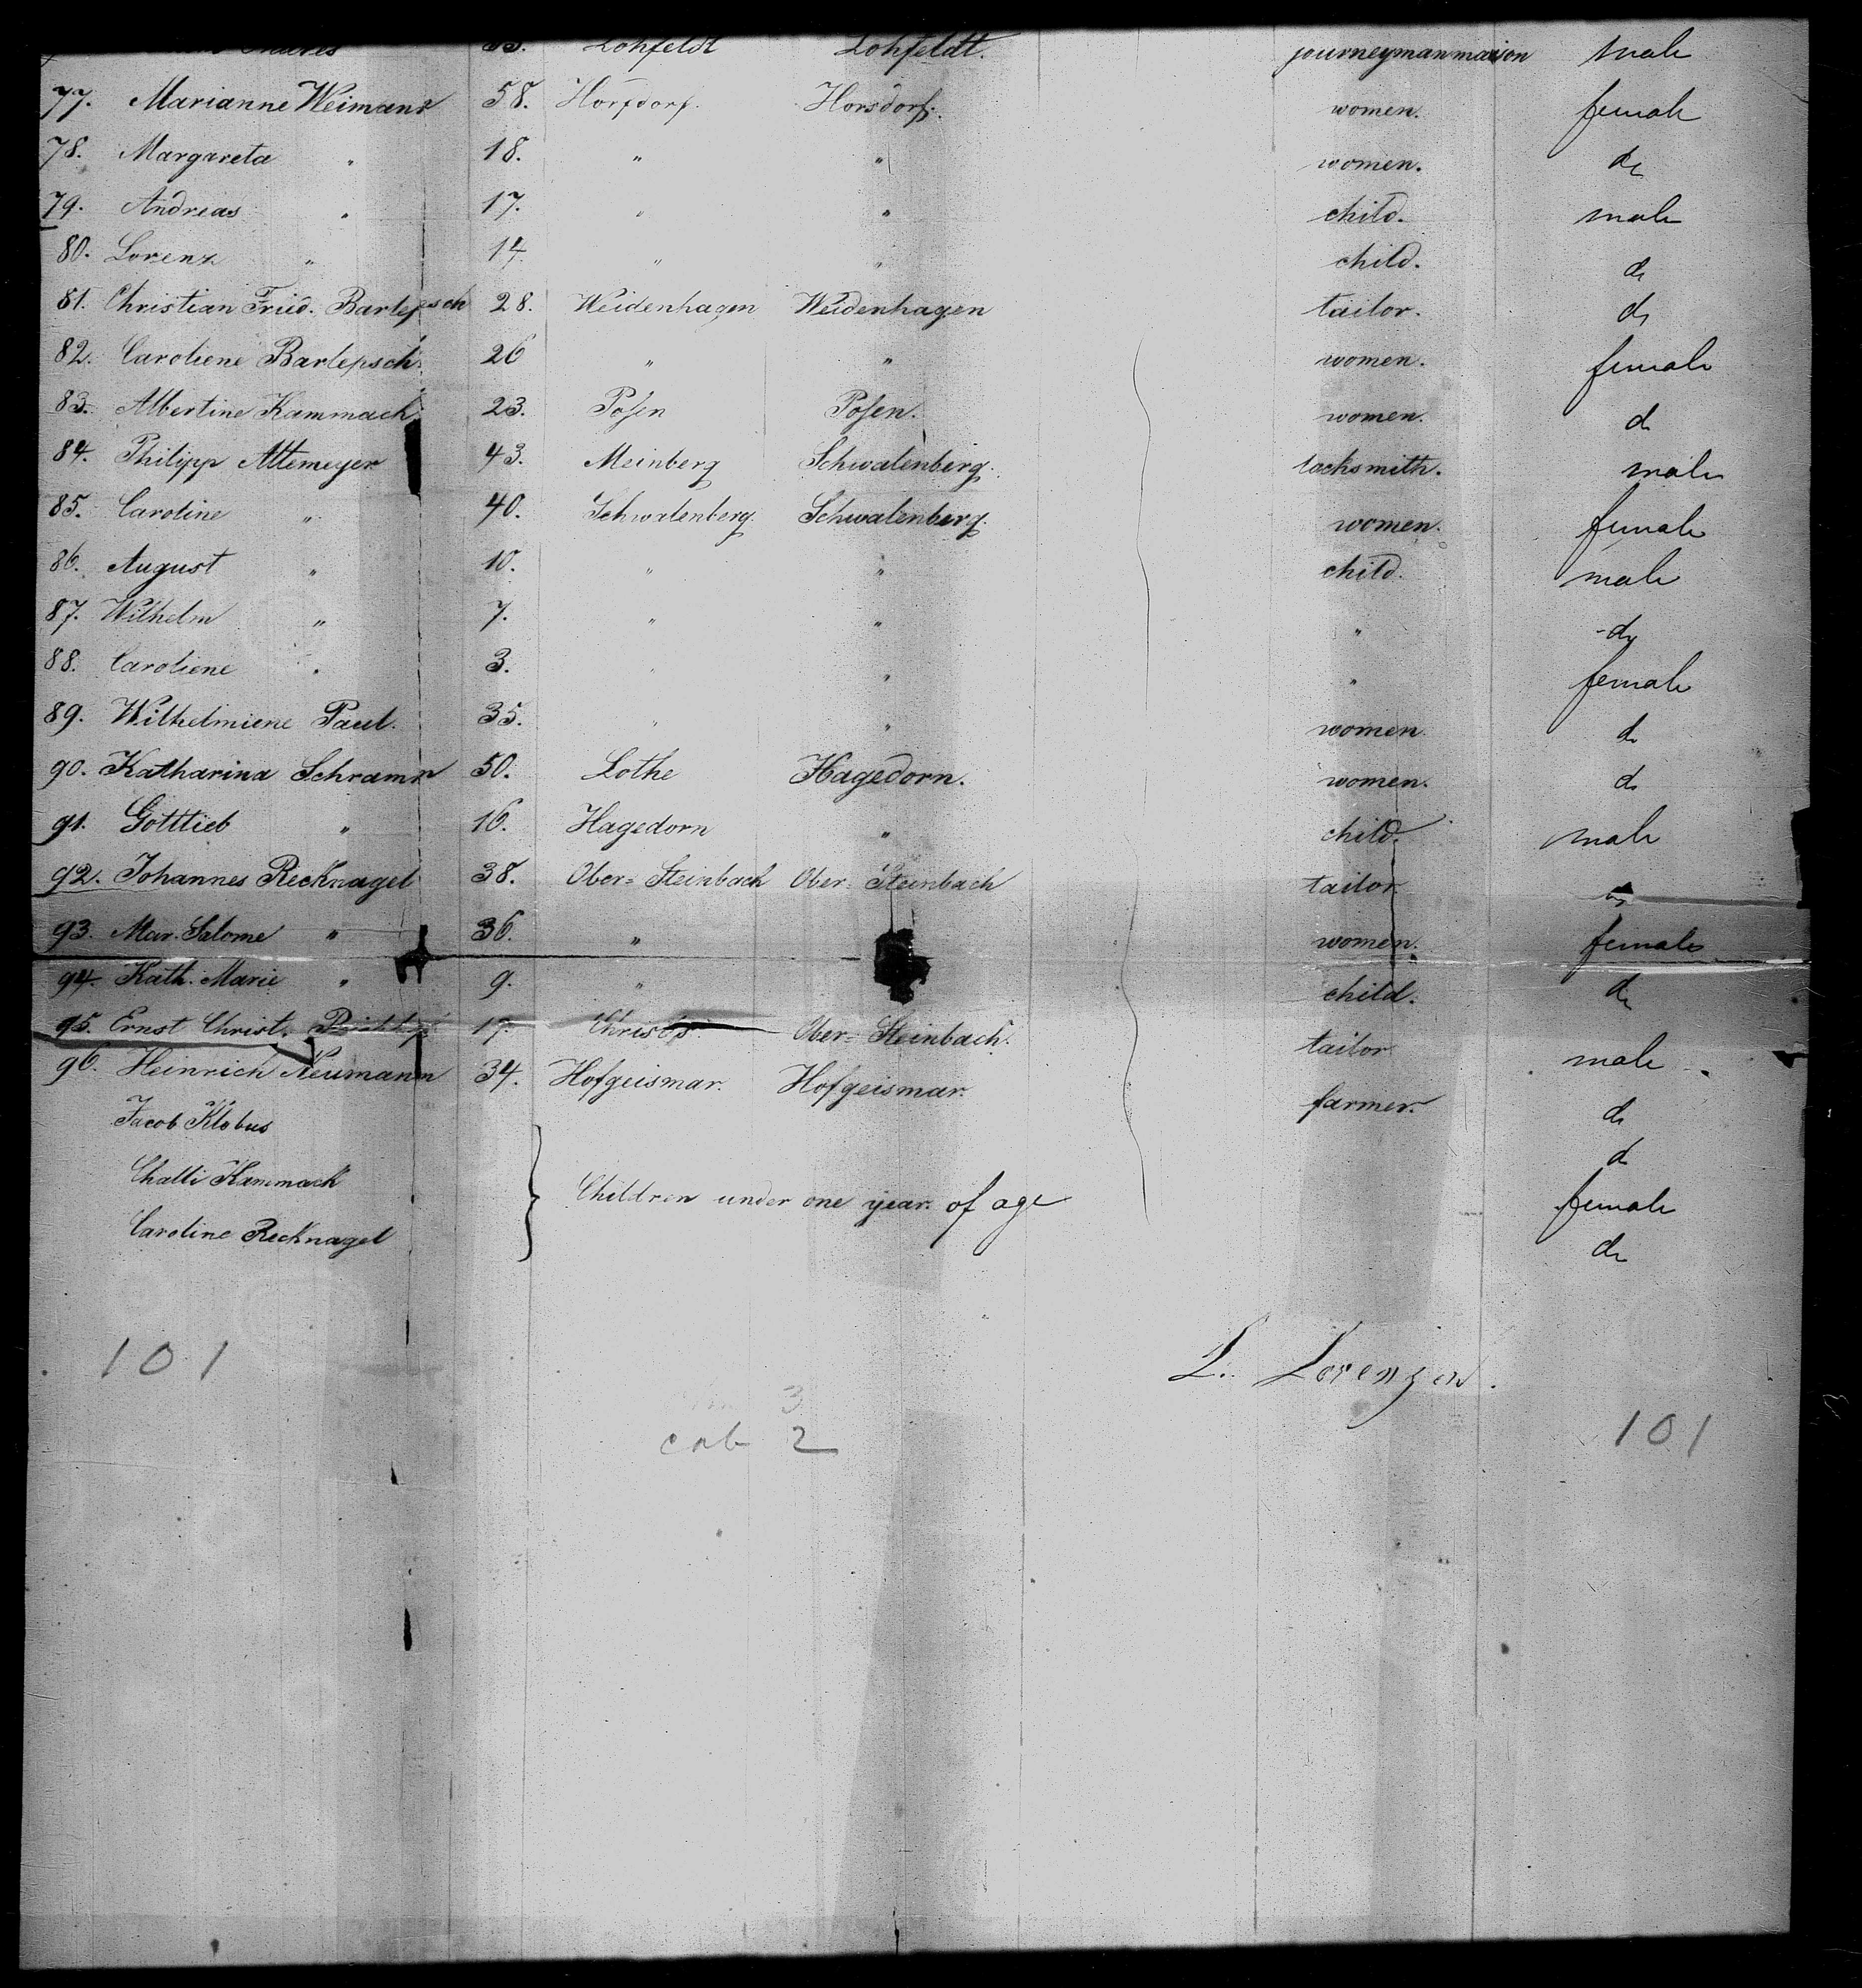 Lohfeldt Lohfeldt. journeyman maison male
77. Marianne Weimann 58. Horsdorf. Horsdorf. women. female
78. Margareta " 18. " " women. do
79. Andreas " 17. " " child. male
80. Lorenz " 14. " " child. do
81. Christian Fried. Barlepsch 28. Weidenhagen Weidenhagen tailor. do
82. Caroliene Barlepsch. 26 " " women. female
83. Albertine Kammach 23. Posen Posen. women. do
84. Philipp Altemeyer 43. Meinberg Schwalenberg. locksmith. male
85. Caroline " 40. Schwalenberg. Schwalenberg. women. female
86. August " 10. " " child. male
87. Wilhelm " 7. " " " do
88. Caroliene " 3. " " " female
89. Wilhelmiene Paul. 35. " " women. do
90. Katharina Schramm 50. Lothe Hagedorn. women. do
91. Gottlieb " 16. Hagedorn " child. male
92. Johannes Recknagel 38. Ober=Steinbach Ober=Steinbach tailor do
93. Mar. Salome " 36. " women. female
94. Kath. Marie " 9. " child. do
95. Ernst Christ. 17. Ober=Steinbach. tailor male
96. Heinrich Neumann 34. Hofgeismar. Hofgeismar. farmer. do
Jacob Klobus do
Chatti Kammach Children under one year of age female
Caroline Recknagel do
101 L. Lorenzen.
3
cab 2 101